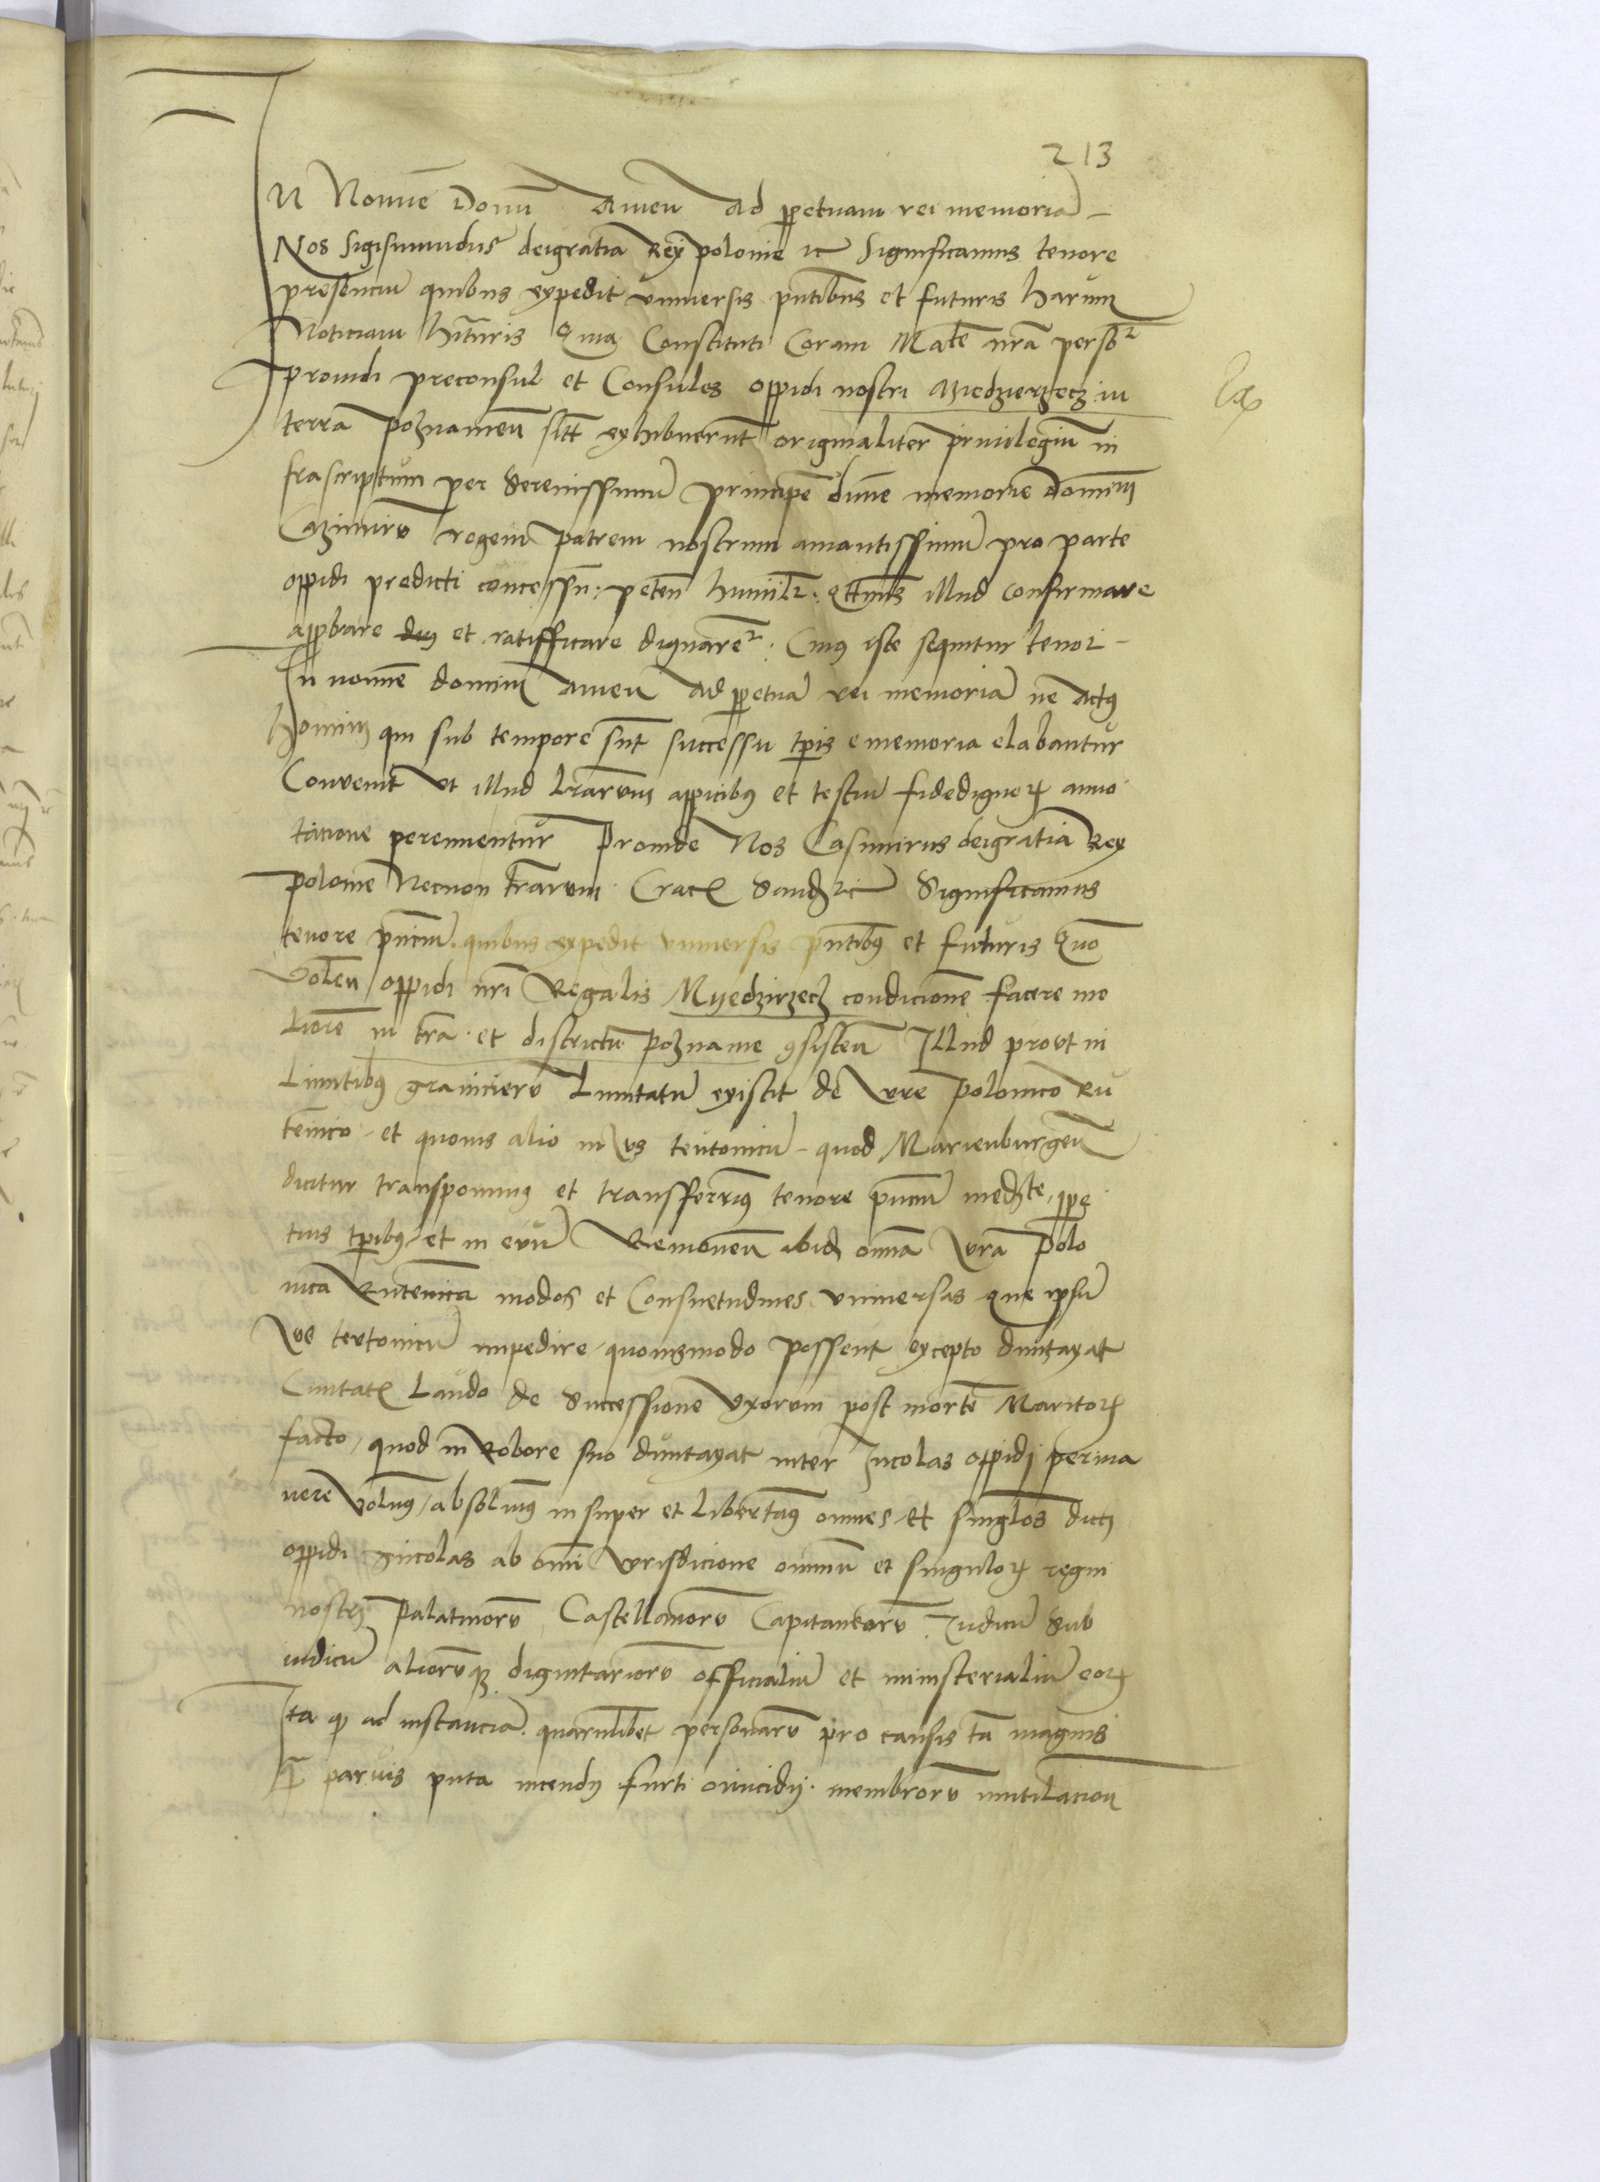 213
IN Nomīe Domī Amen Ad ppetuam rei memoriā
Nos Sigismūdus deigratia Rex polonie ꝛc Significamus tenore
presenciū quibus expedit vniuersis pn̄tibus et futuris harum
Noticiam hīturis Quia Constituti Coram Mate nr̄a persõr
prouidi preconsul et Consules oppidi nostri Miedzierzecz in
terra Poznanien̄ sitī exhibuerunt originaliter priuilegiū in
frascriptum per Serenissimū principē diuie memorie Dominū
Cazimirū regem patrem nostrum amantissimū pro parte
oppidi predicti concessū: peten̄ humilr: illud confirmare
approbare et ratifficare dignarer. Cuius iste sequitur tenor
In nomīe domini Amen Ad ppetuā rei memoriā ne actus
hominū qui sub tempore sūt successu tp̄is e memoria elabantur
Conuenit Vt illud lr̄arum appicibus et testiū fidedignoꝝ anno
tacione perennentur Proinde Nos Casimirus deigratia Rex
polonie Necnon terrarum Crac̄ Sand̄ ꝛc Significamus
tenore pn̄ciū quibus expedit vniuersis pn̄tibus et futuris Quo
Volen̄ oppidi nr̄i Regalis Myedzirzecz condicionē facere me
liorē in tr̄a et districtu Poznanie ꝯsisten̄ Illud prout in
Limitibus granicierū Limitatū existit de Iure Polonico Ru
tenico et quouis alio in Ius teutonicū quod Marienburgen̄
dicitur transponimus et transferrimus tenore pn̄ciū mediāte ppe
tuis tp̄ibus et in euū Remouen̄ ibid̄ omīa Iura Polo
nica Rutenica modos et Consuetudines vniuersas que ipsū
Ius teutonicū impedire quouismodo possent excepto duntaxat
Ciuitatꝭ Laudo de Successione vxorum post mortē Maritoꝝ
facto quod in Robore suo duntaxat inter Incolas oppidi perma
nere Volumus absoluimus insuper et libertamus omnes et singulos dicti
oppidi Incolas ab omī Iurisdicione omniū et singuloꝝ regni
nostri Palatinorū Castellanorū Capitaneorū Iudicū Sub
iudicū aliorūque dignitariorū officialiū et ministerialiū eoꝝ
Ita qꝫ ad instanciā quarumlibet personarū pro causis tā magnis
quā paruis puta incendij furti omicidij membrorū mutilacion̄